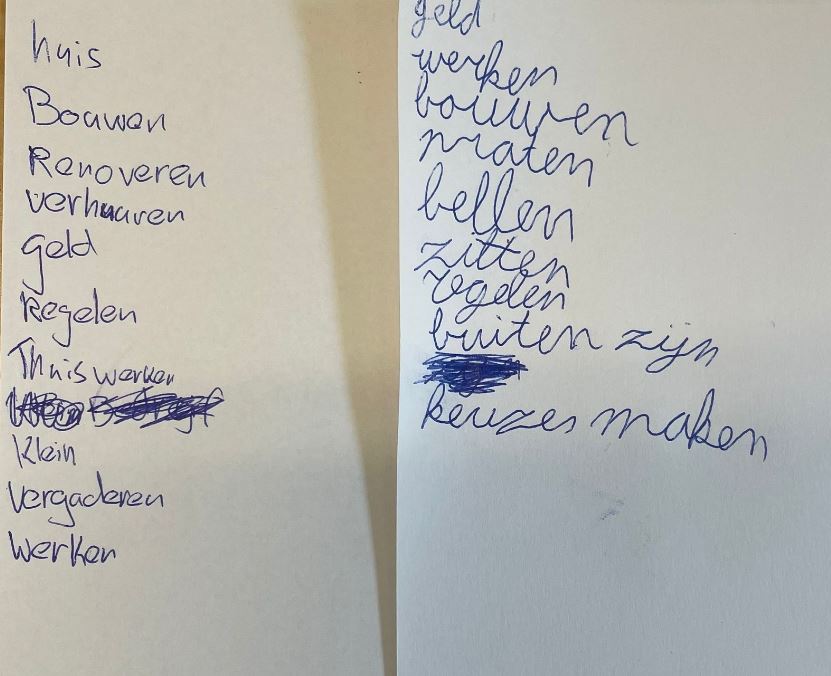 huis
Bouwen
Renoveren
verhuuren
geld
Regelen
Thuis werken
Klein
Vergaderen
Werken
geld
werken
bouwen
praten
bellen
zitten
regelen
buiten zijn
keuzes maken